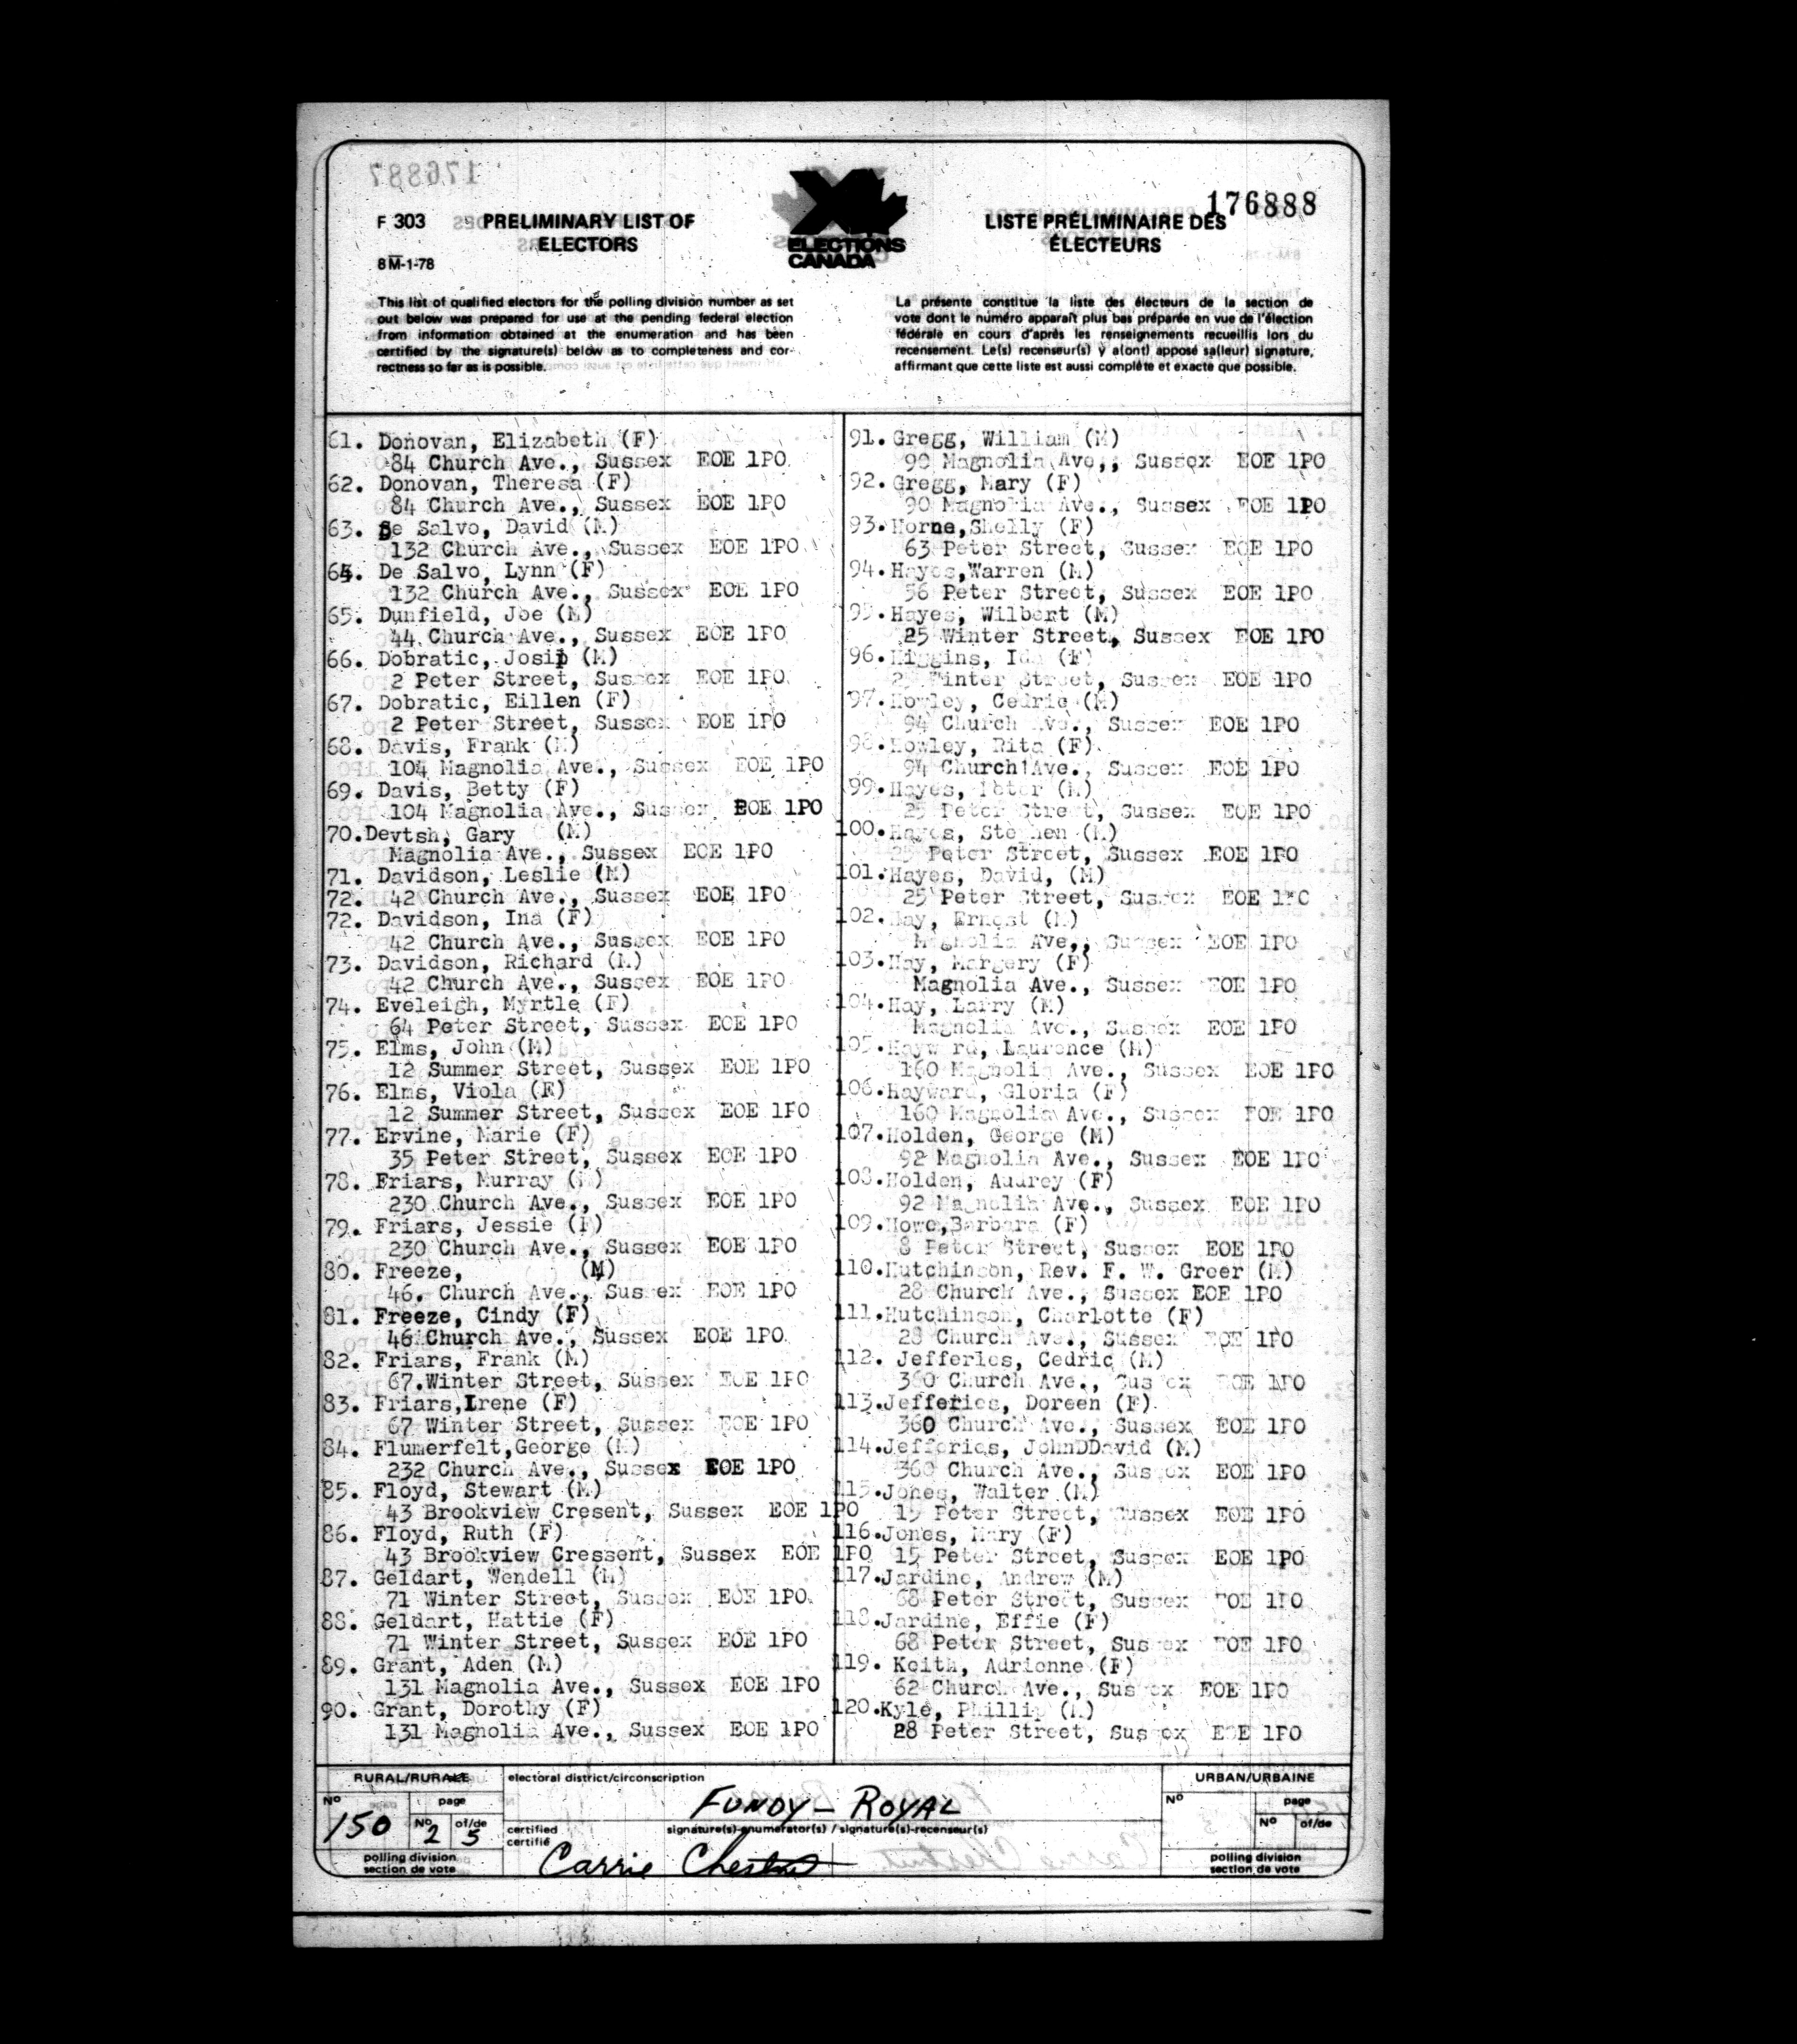 176888
F 303
PRELIMINARY LIST OF
ELECTORS
8 M-1-78
ELECTIONS
CANADA
LISTE PRÉLIMINAIRE DES
ÉLECTEURS
This list of qualified electors for the polling division number as set
out below was prepared for use at the pending federal election
from information obtained at the enumeration and has been
certified by the signature(s) below as to completeness and cor-
rectness so far as is possible.
La présente constitue la liste des électeurs de la section de
vote dont le numéro apparaît plus bas préparée en vue de l'élection
fédérale en cours d'après les renseignements recueillis lors du
recensement. Le(s) recenseur(s) y a(ont) apposé sa(leur) signature,
affirmant que cette liste est aussi complète et exacte que possible.
61. Donovan, Elizabeth (F)
84 Church Ave., Sussex EOE 1PO
62. Donovan, Theresa (F)
84 Church Ave., Sussex EOE 1PO
63. De Salvo, David (M)
132 Church Ave., Sussex EOE 1PO
64. De Salvo, Lynn (F)
132 Church Ave., Sussex EOE 1PO
65. Dunfield, Joe (M)
44 Church Ave., Sussex EOE 1PO
66. Dobratic, Josip (M)
2 Peter Street, Sussex EOE 1PO
67. Dobratic, Eillen (F)
2 Peter Street, Sussex EOE 1PO
68. Davis, Frank (M)
104 Magnolia Ave., Sussex EOE 1PO
69. Davis, Betty (F)
104 Magnolia Ave., Sussex EOE 1PO
70. Devtsh, Gary (M)
Magnolia Ave., Sussex EOE 1PO
71. Davidson, Leslie (M)
72. 42 Church Ave., Sussex EOE 1PO
72. Davidson, Ina (F)
42 Church Ave., Sussex EOE 1PO
73. Davidson, Richard (M)
42 Church Ave., Sussex EOE 1PO
74. Eveleigh, Myrtle (F)
64 Peter Street, Sussex EOE 1PO
75. Elms, John (M)
12 Summer Street, Sussex EOE 1PO
76. Elms, Viola (F)
12 Summer Street, Sussex EOE 1PO
77. Ervine, Marie (F)
35 Peter Street, Sussex EOE 1PO
78. Friars, Murray (M)
230 Church Ave., Sussex EOE 1PO
79. Friars, Jessie (F)
230 Church Ave., Sussex EOE 1PO
80. Freeze, (M)
46. Church Ave., Sussex EOE 1PO
81. Freeze, Cindy (F)
46 Church Ave., Sussex EOE 1PO
82. Friars, Frank (M)
67.Winter Street, Sussex EOE 1PO
83. Friars,Irene (F)
67 Winter Street, Sussex EOE 1PO
84. Flumerfelt,George (M)
232 Church Ave., Sussex EOE 1PO
85. Floyd, Stewart (M)
43 Brookview Cresent, Sussex EOE 1PO
86. Floyd, Ruth (F)
43 Brookview Cressent, Sussex EOE 1PO
87. Geldart, Wendell (M)
71 Winter Street, Sussex EOE 1PO
88. Geldart, Hattie (F)
71 Winter Street, Sussex EOE 1PO
89. Grant, Aden (M)
131 Magnolia Ave., Sussex EOE 1PO
90. Grant, Dorothy (F)
131 Magnolia Ave., Sussex EOE 1PO
91. Gregg, William (M)
90 Magnolia Ave,, Sussex EOE 1PO
92. Gregg, Mary (F)
90 Magnolia Ave., Sussex EOE 1PO
93. Horne,Shelly (F)
63 Peter Street, Sussex EOE 1PO
94. Hayes,Warren (M)
56 Peter Street, Sussex EOE 1PO
95. Hayes, Wilbert (M)
25 Winter Street, Sussex EOE 1PO
96. Higgins, Ida (F)
Winter Street, Sussex EOE 1PO
97. Howley, Cedric (M)
94 Church Ave., Sussex EOE 1PO
98. Howley, Rita (F)
94 Church Ave., Sussex EOE 1PO
99. Hayes, Peter (M)
25 Peter Street, Sussex EOE 1PO
100. Hayes, Stephen (M)
25 Peter Street, Sussex EOE 1PO
101. Hayes, David, (M)
25 Peter Street, Sussex EOE 1PO
102. Hay, Ernest (M)
Magnolia Ave,, Sussex EOE 1PO
103. Hay, Margery (F)
Magnolia Ave., Sussex EOE 1PO
104. Hay, Larry (M)
Magnolia Ave., Sussex EOE 1PO
105. Hayward, Laurence (M)
160 Magnolia Ave., Sussex EOE 1PO
106. Hayward, Gloria (F)
160 Magnolia Ave., Sussex EOE 1PO
107. Holden, George (M)
92 Magnolia Ave., Sussex EOE 1PO
108. Holden, Audrey (F)
92 Magnolia Ave., Sussex EOE 1PO
109. Howe,Barbara (F)
8 Peter Street, Sussex EOE 1PO
110. Hutchinson, Rev. F. W. Greer (M)
28 Church Ave., Sussex EOE 1PO
111. Hutchinson, Charlotte (F)
28 Church Ave., Sussex EOE 1PO
112. Jefferies, Cedric (M)
360 Church Ave., Sussex EOE 1PO
113. Jefferies, Doreen (F)
360 Church Ave., Sussex EOE 1PO
114. Jefferies, JohnDDavid (M)
360 Church Ave., Sussex EOE 1PO
115. Jones, Walter (M)
15 Peter Street, Sussex EOE 1PO
116. Jones, Mary (F)
15 Peter Street, Sussex EOE 1PO
117. Jardine, Andrew (M)
68 Peter Street, Sussex EOE 1PO
118. Jardine, Effie (F)
68 Peter Street, Sussex EOE 1PO
119. Keith, Adrienne (F)
62 Church Ave., Sussex EOE 1PO
120. Kyle, Phillip (M)
28 Peter Street, Sussex EOE 1PO
RURAL/RURALE
No 150
page
No 2 of/de 5
polling division
section de vote
electoral district/circonscription
FUNDY - ROYAL
certified
certifié
signature(s)-enumerator(s) / signature(s)-recenseur(s)
Carrie Chestnut
URBAN/URBAINE
No
page
No of/de
polling division
section de vote